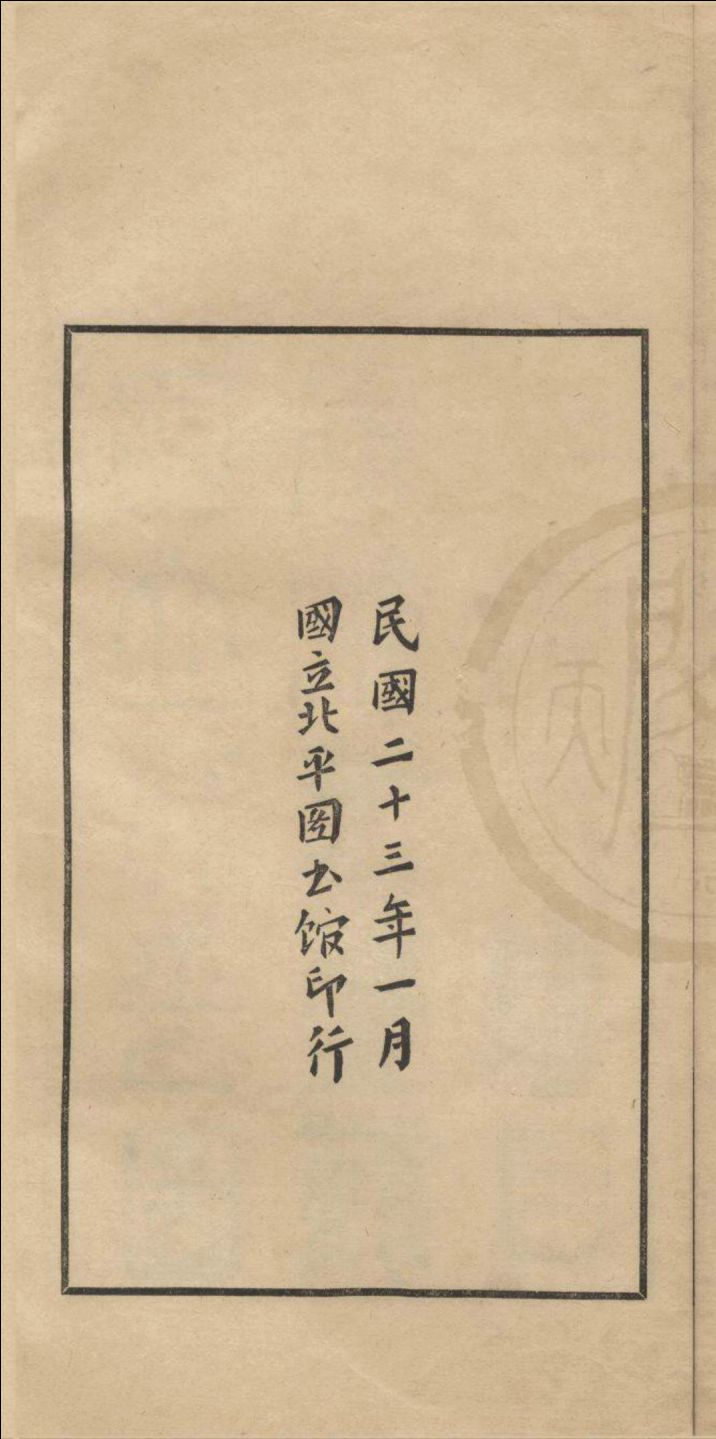 民國二十三年一月
國立北平图书馆印行